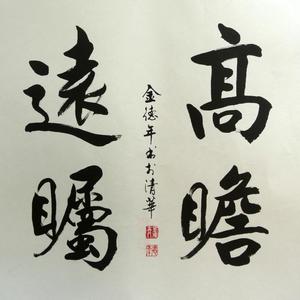 高瞻
遠矚
金德年书於清華